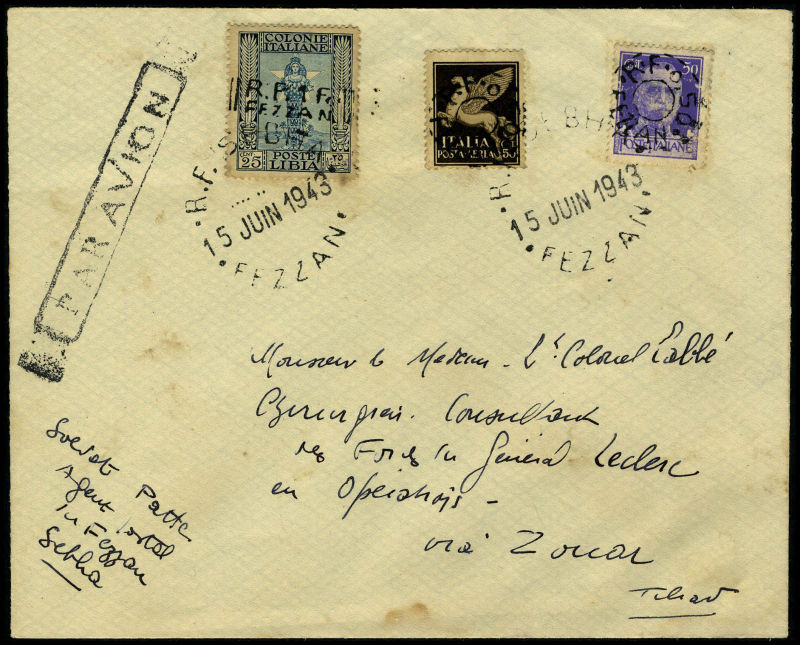 PAR AVION
COLONIE
ITALIANE
R.F. 1 Fr.
FEZZAN
CENT
25
POSTE
LIBIA
R.F. SEBHA
15 JUIN 1943
FEZZAN
ITALIA
POSTA AEREA
50
R.F.
50
FEZZAN
POSTE ITALIANE
R.F. SEBHA
15 JUIN 1943
FEZZAN
Monsieur le Médecin Lt Colonel l'abbé
Chirurgien Consultant
des Forces du Général Leclerc
en Opérations -
via Zouar
Tchad
Soldat Patte
Agent postal
du Fezzan
Sebha